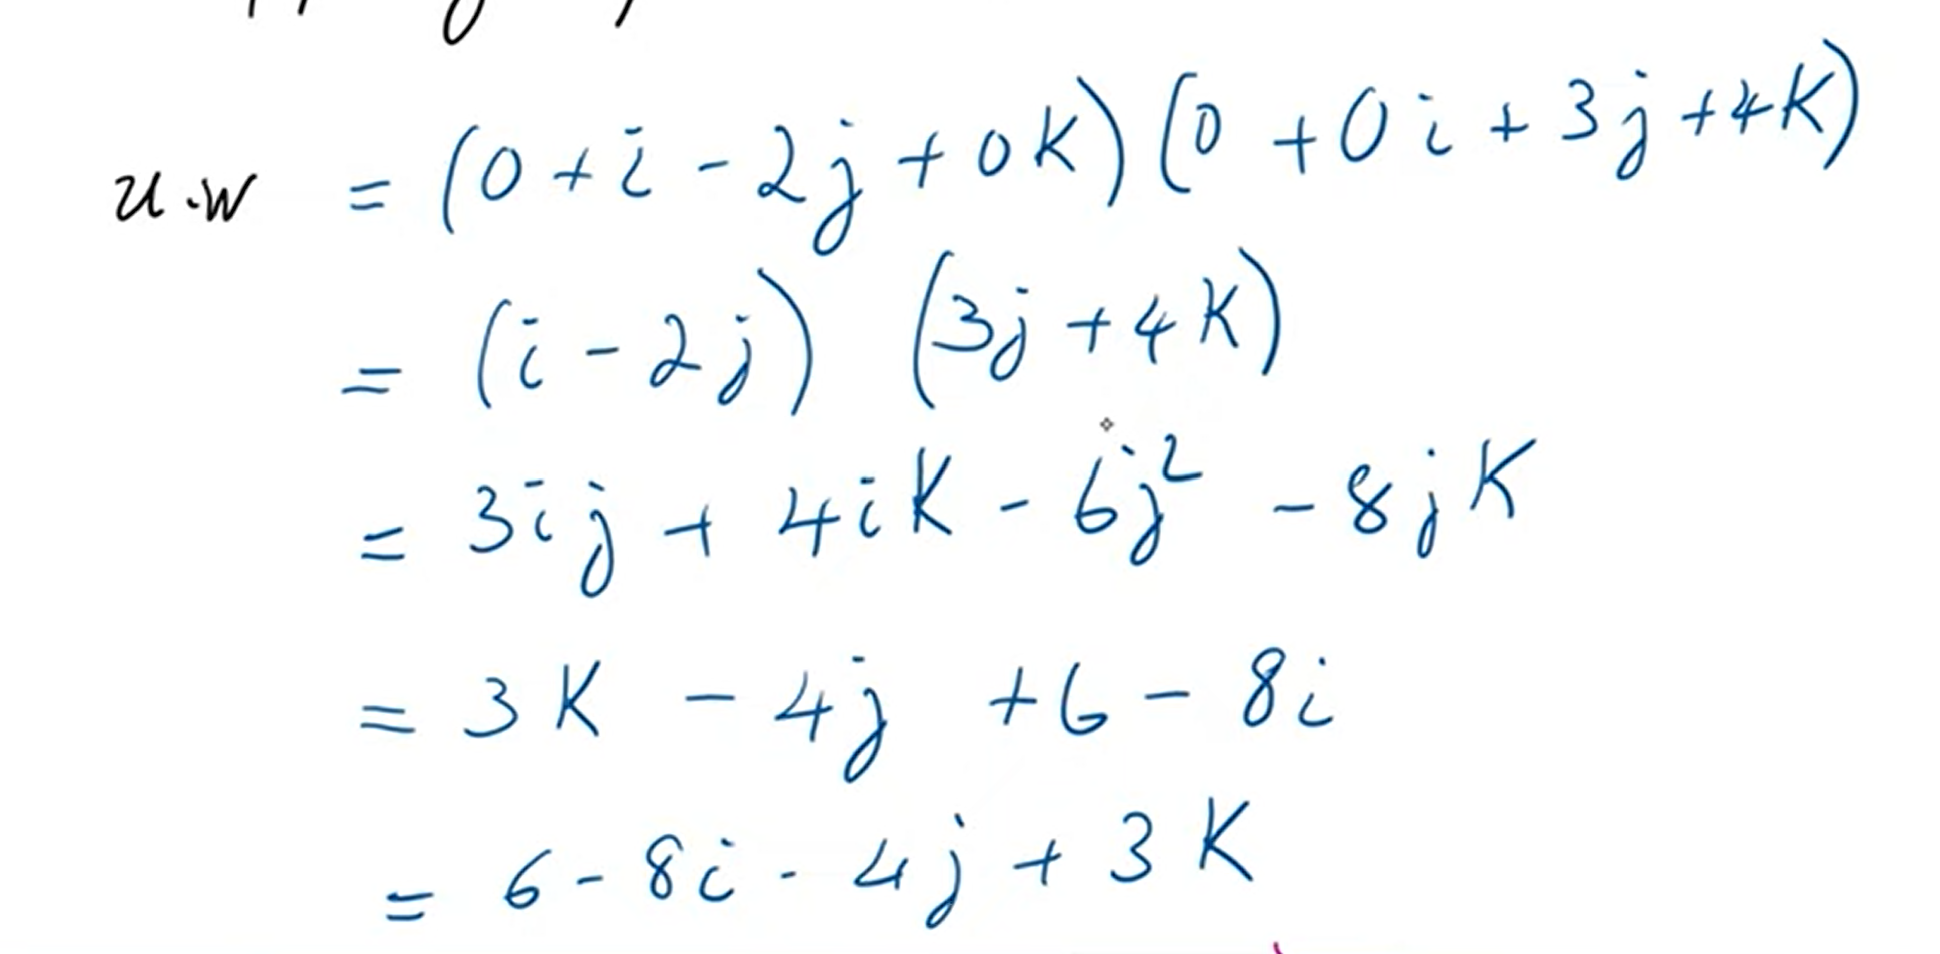 u.w = (0 + i - 2j + 0K) (0 + 0i + 3j + 4K)
= (i - 2j) (3j + 4K)
= 3ij + 4iK - 6j² - 8jK
= 3K - 4j + 6 - 8i
= 6 - 8i - 4j + 3K